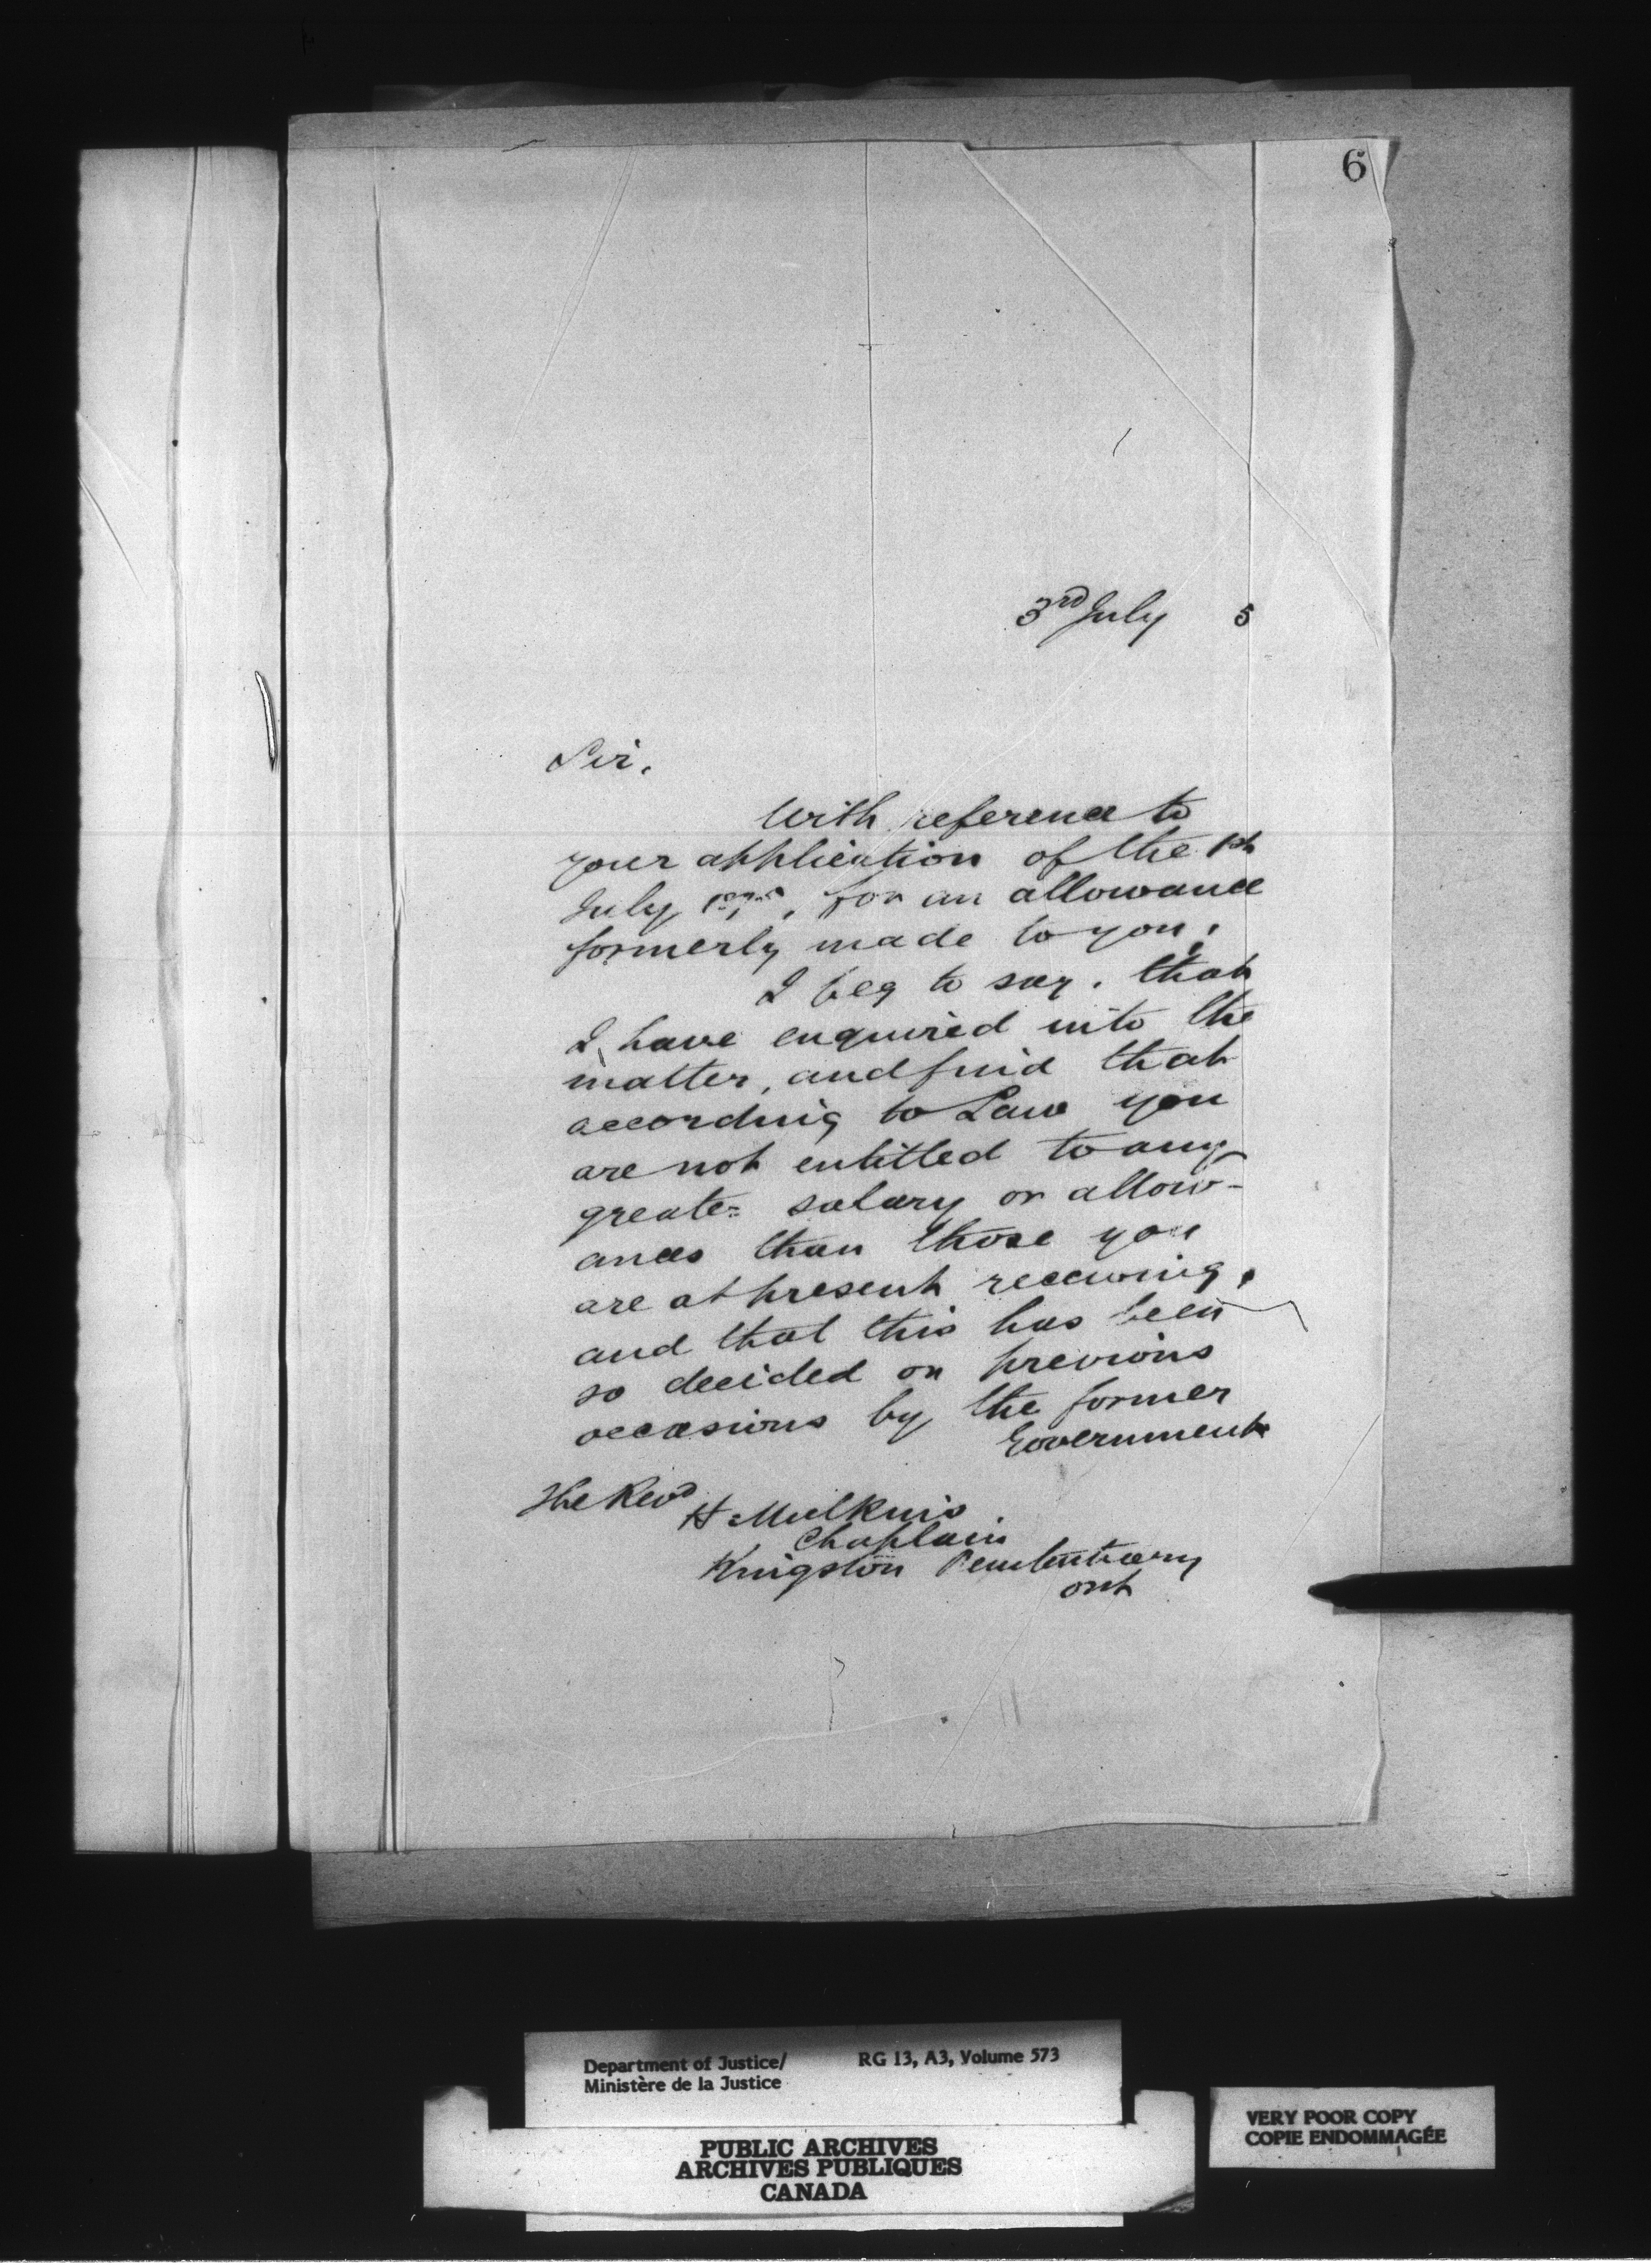 6
3rd July 5
Sir.
With reference to
your application of the 1st
July 1875, for an allowance
formerly made to you,
I beg to say, that
I have enquired into the
matter, and find that
according to Law you
are not entitled to any
greater salary or allow-
ances than those you
are at present receiving,
and that this has been
so decided on previous
occasions by the former
Government
The Revd
H Mulkins
Chaplain
Kingston Penitentiary
Ont
Department of Justice/ RG 13, A3, Volume 573
Ministère de la Justice
PUBLIC ARCHIVES
ARCHIVES PUBLIQUES
CANADA
VERY POOR COPY
COPIE ENDOMMAGÉE